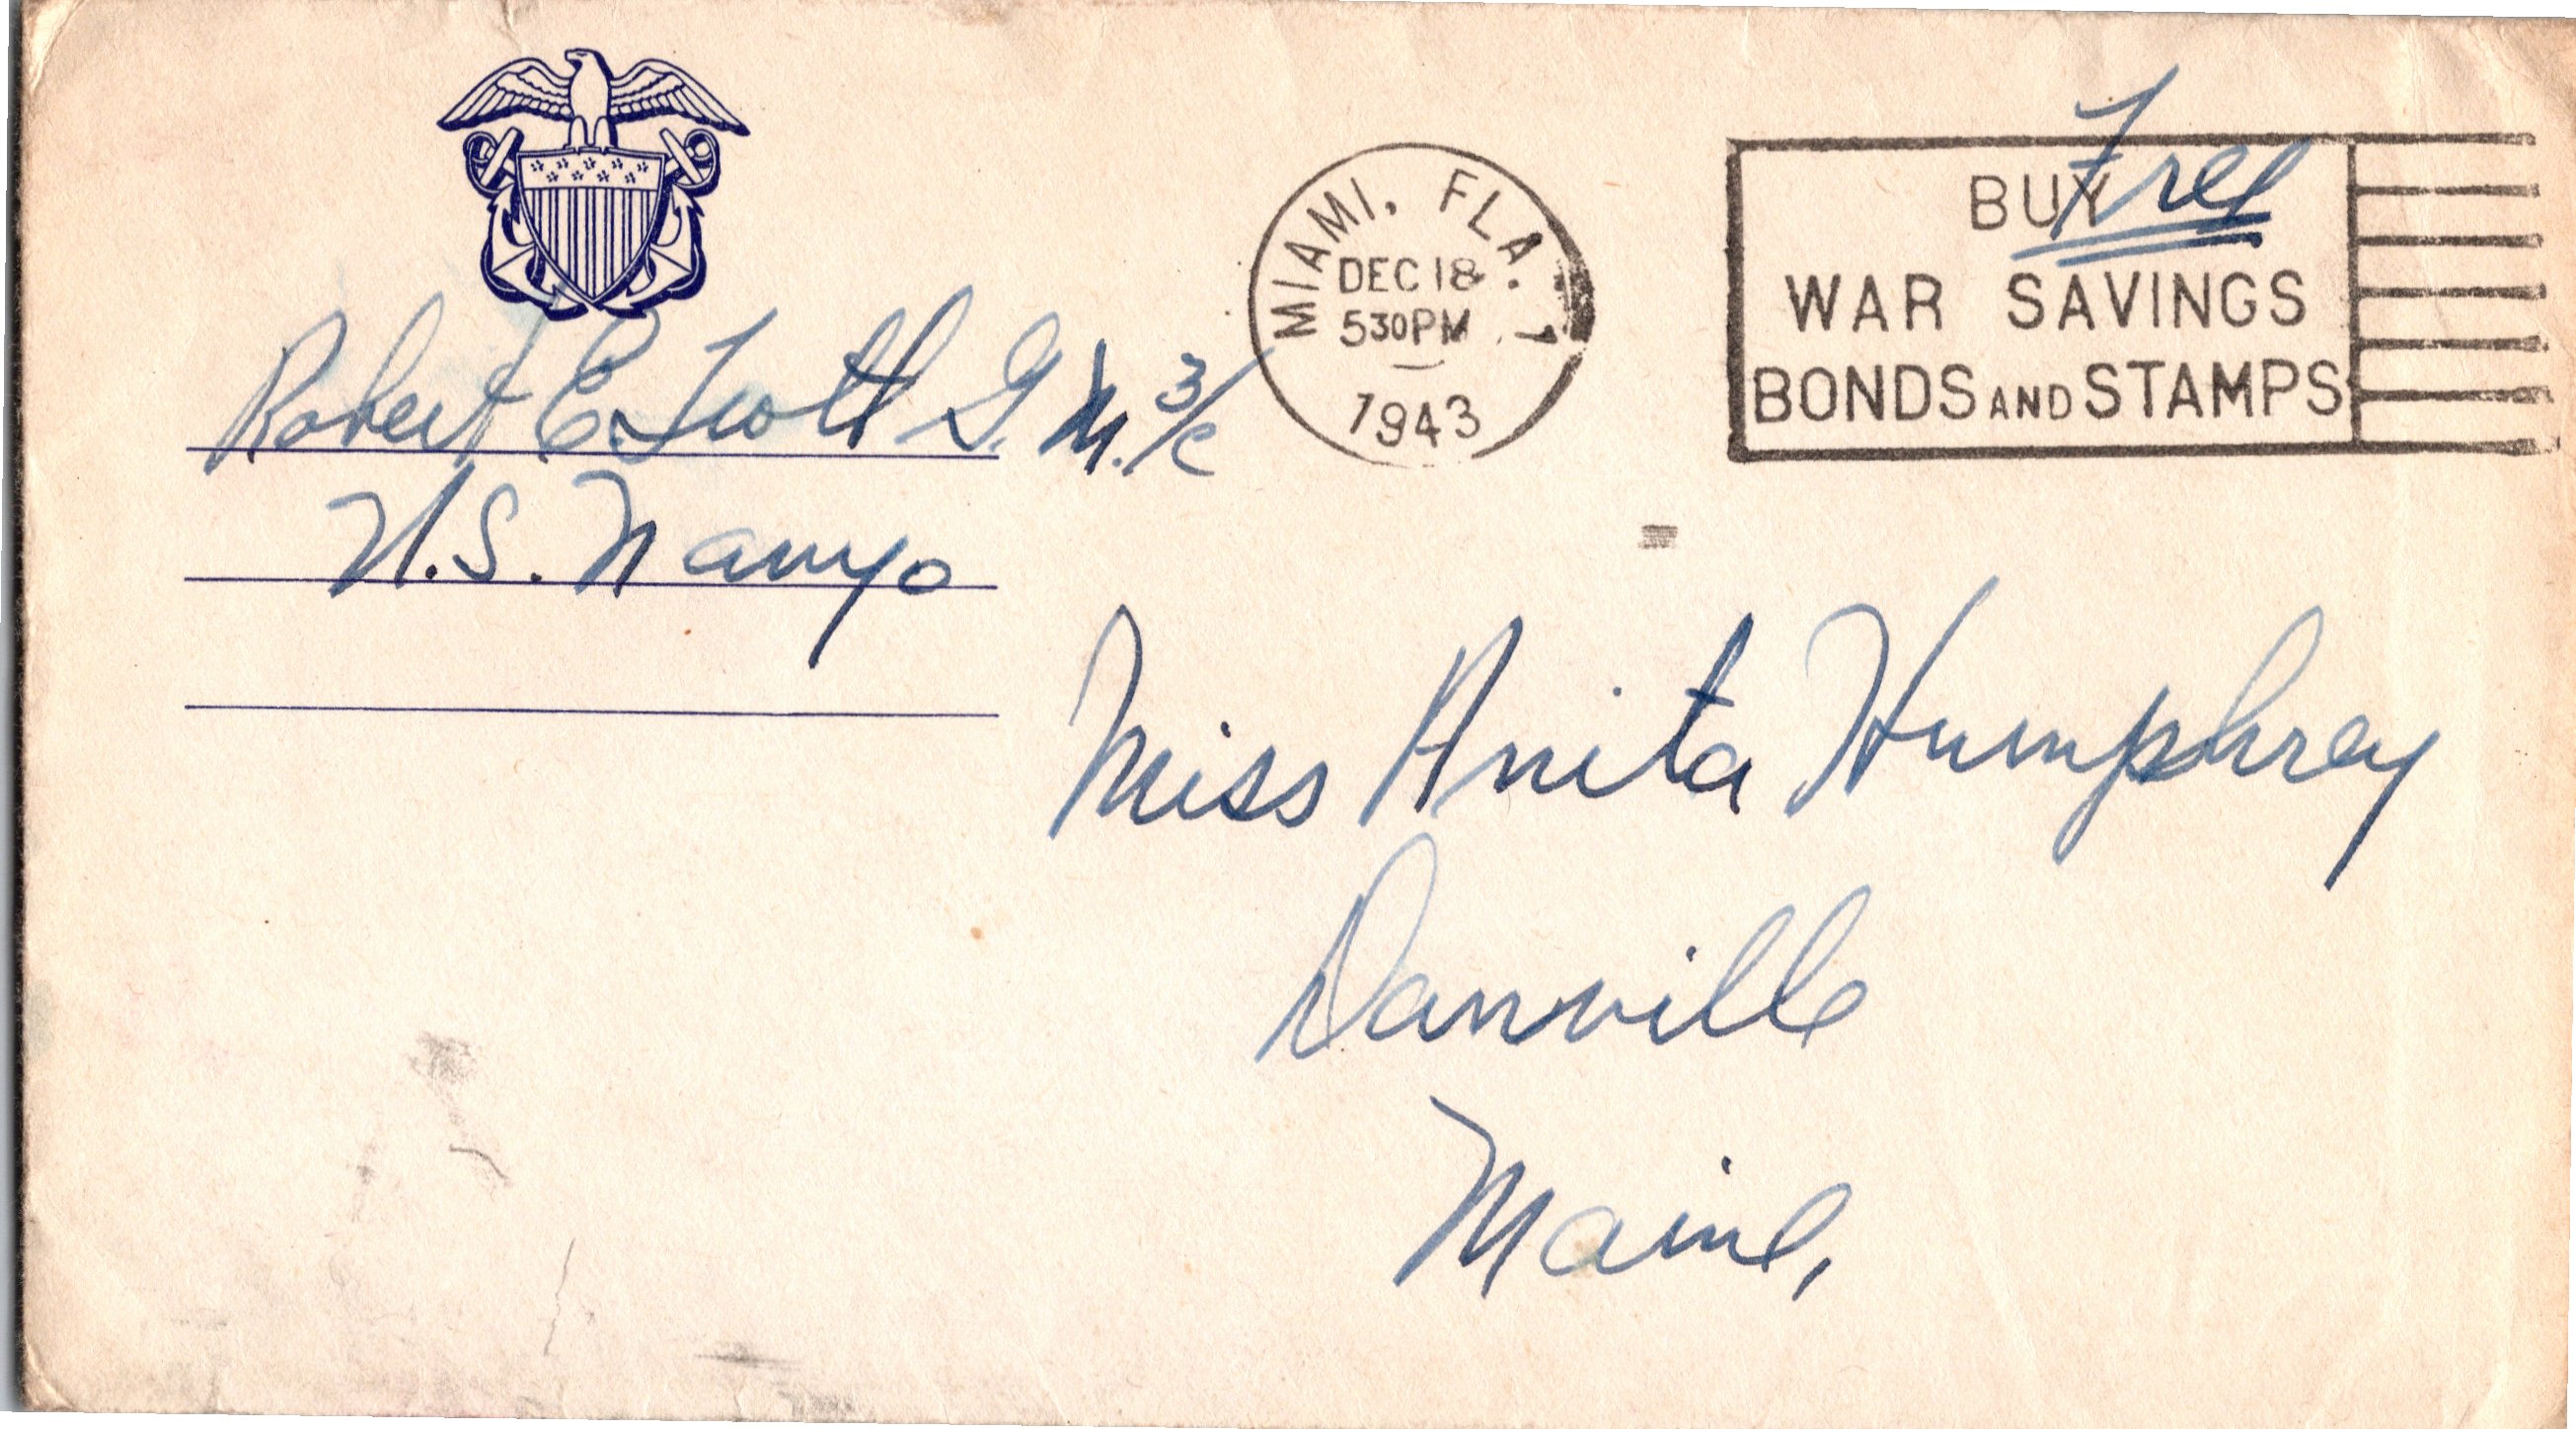 Robert E. Trott G.M. 3/c
U.S. Navy.
MIAMI, FLA. 1
DEC 18
530PM
1943
Free
BUY
WAR SAVINGS
BONDS AND STAMPS
Miss Anita Humphrey
Danville
Maine,